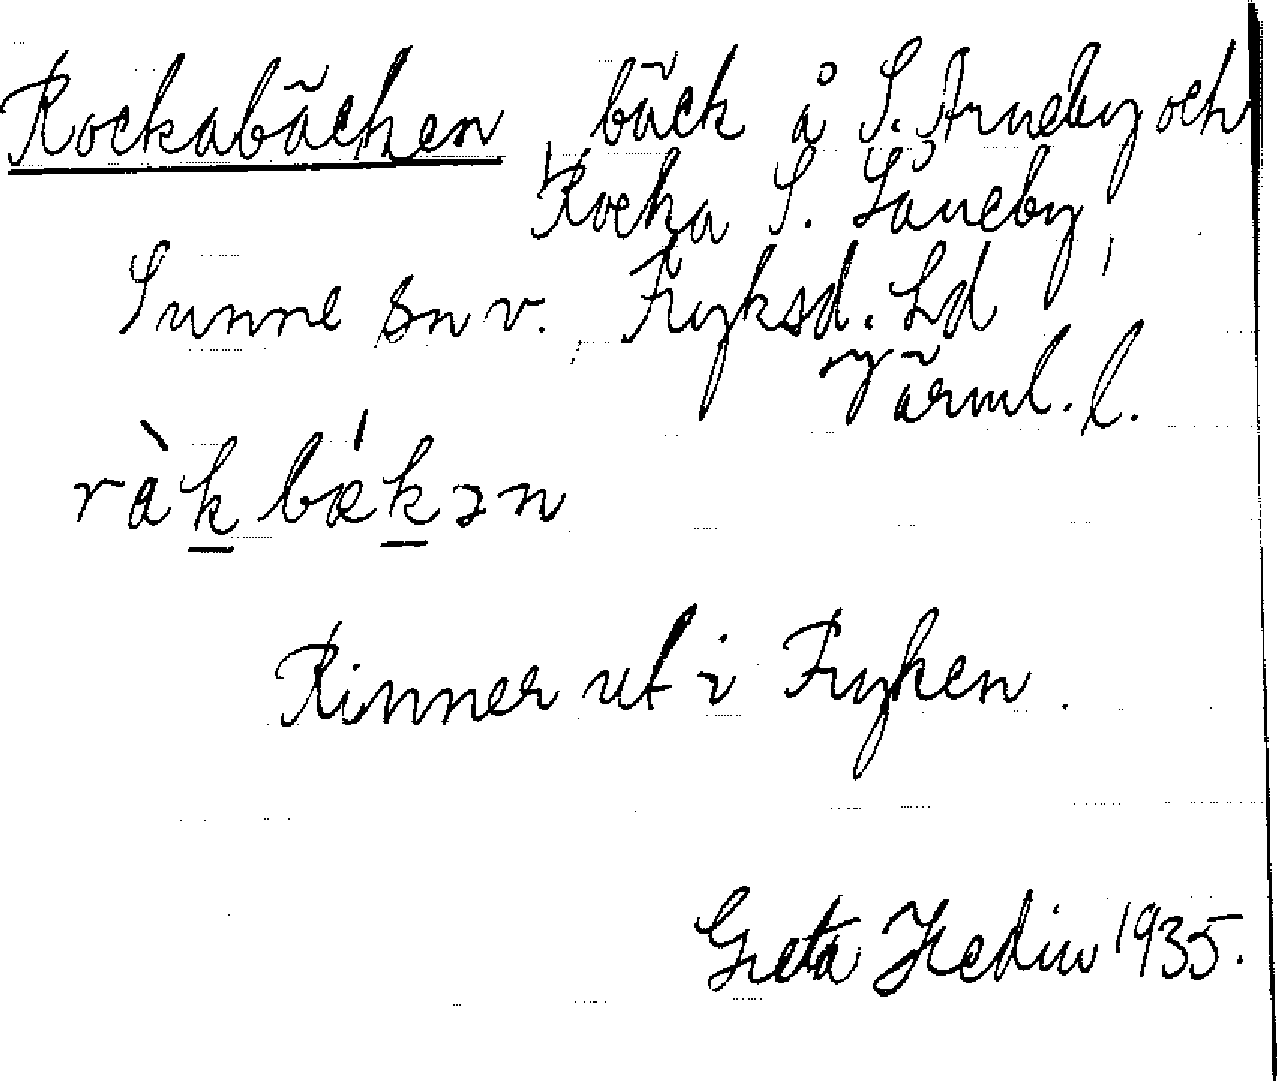 Rockabäcken, bäck å S. Årneby och
Rocka S. Såneby,
Sunne sn v. Fryksd. hd
Värml. l.
ràkbǽkən
Rinner ut i Fryken.
Greta Hedin 1935.